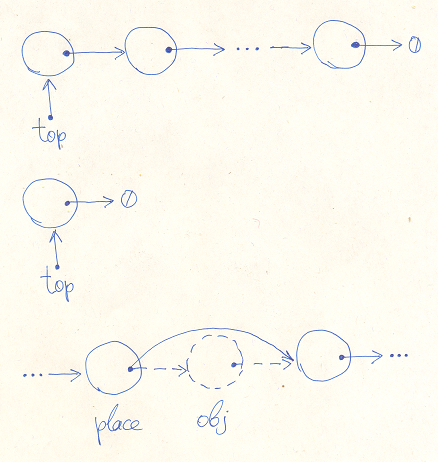 ... 0
top
0
top
... ...
place obj